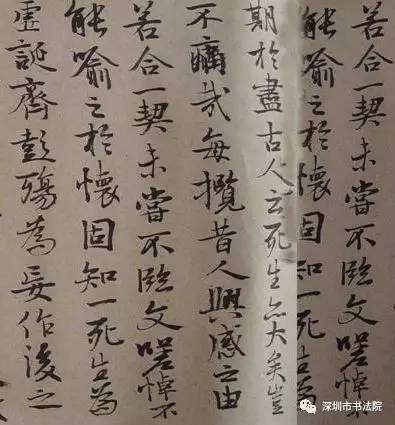 若合一契未嘗不臨文嗟悼不
能喻之於懷固知一死生為
期於盡古人云死生亦大矣豈
不痛哉每攬昔人興感之由
若合一契未嘗不臨文嗟悼不
能喻之於懷固知一死生為
虛誕齊彭殤為妄作後之
深圳市书法院